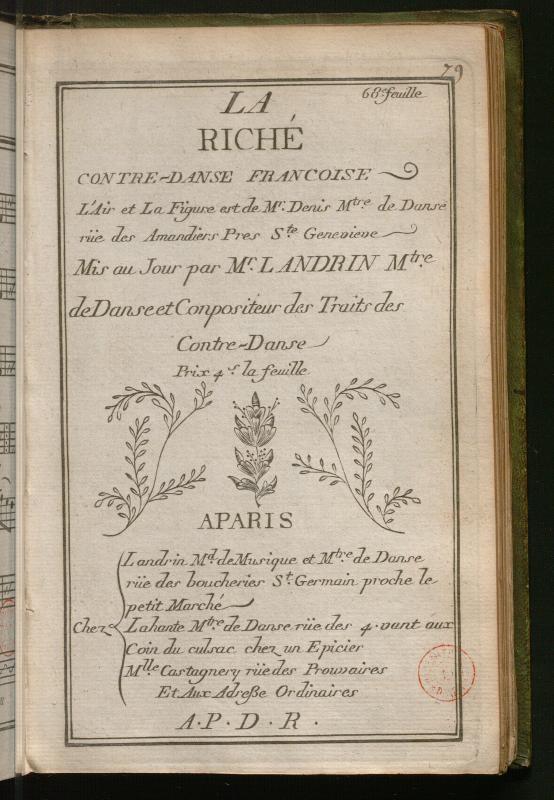 79
68.e feuille
LA
RICHÉ
CONTRE-DANSE FRANCOISE
L'Air et La Figure est de Mr. Denis Mtre de Danse
rüe des Amandiers Pres Ste Genevieve
Mis au Jour par Mr. LANDRIN Mtre
de Danse et Conpositeur des Traits des
Contre-Danse
Prix 4.s la feuille
APARIS
Chez
Landrin Md. de Musique et Mtre de Danse
rüe des boucheries St. Germain proche le
petit Marché
Lahante Mtre de Danse rüe des 4. vant aux
Coin du culsac chez un Epicier
Mlle Castagnery rüe des Prouvaires
Et Aux Adreße Ordinaires
A.P.D.R.